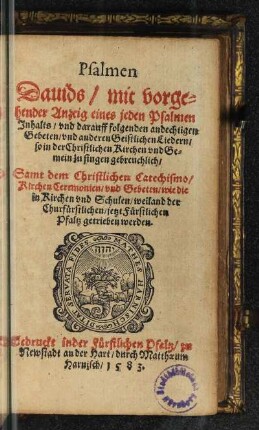 Psalmen
Dauids / mit vorge-
hender Anzeig eines jeden Psalmen
Inhalts / vnd darauff folgenden andechtigen
Gebeten / vnd anderen Geistlichen Liedern /
so in der Christlichen Kirchen vnd Ge-
mein zu singen gebreuchlich /
Samt dem Christlichen Catechismo /
Kirchen Ceremonien / vnd Gebeten / wie die
in Kirchen vnd Schulen / weiland der
Churfürstlichen / jetzt Fürstlichen
Pfaltz getrieben werden.
Gedruckt in der Fürstlichen Pfaltz / zu
Newstadt an der Hart / durch Matthæum
Harnisch / 1583.